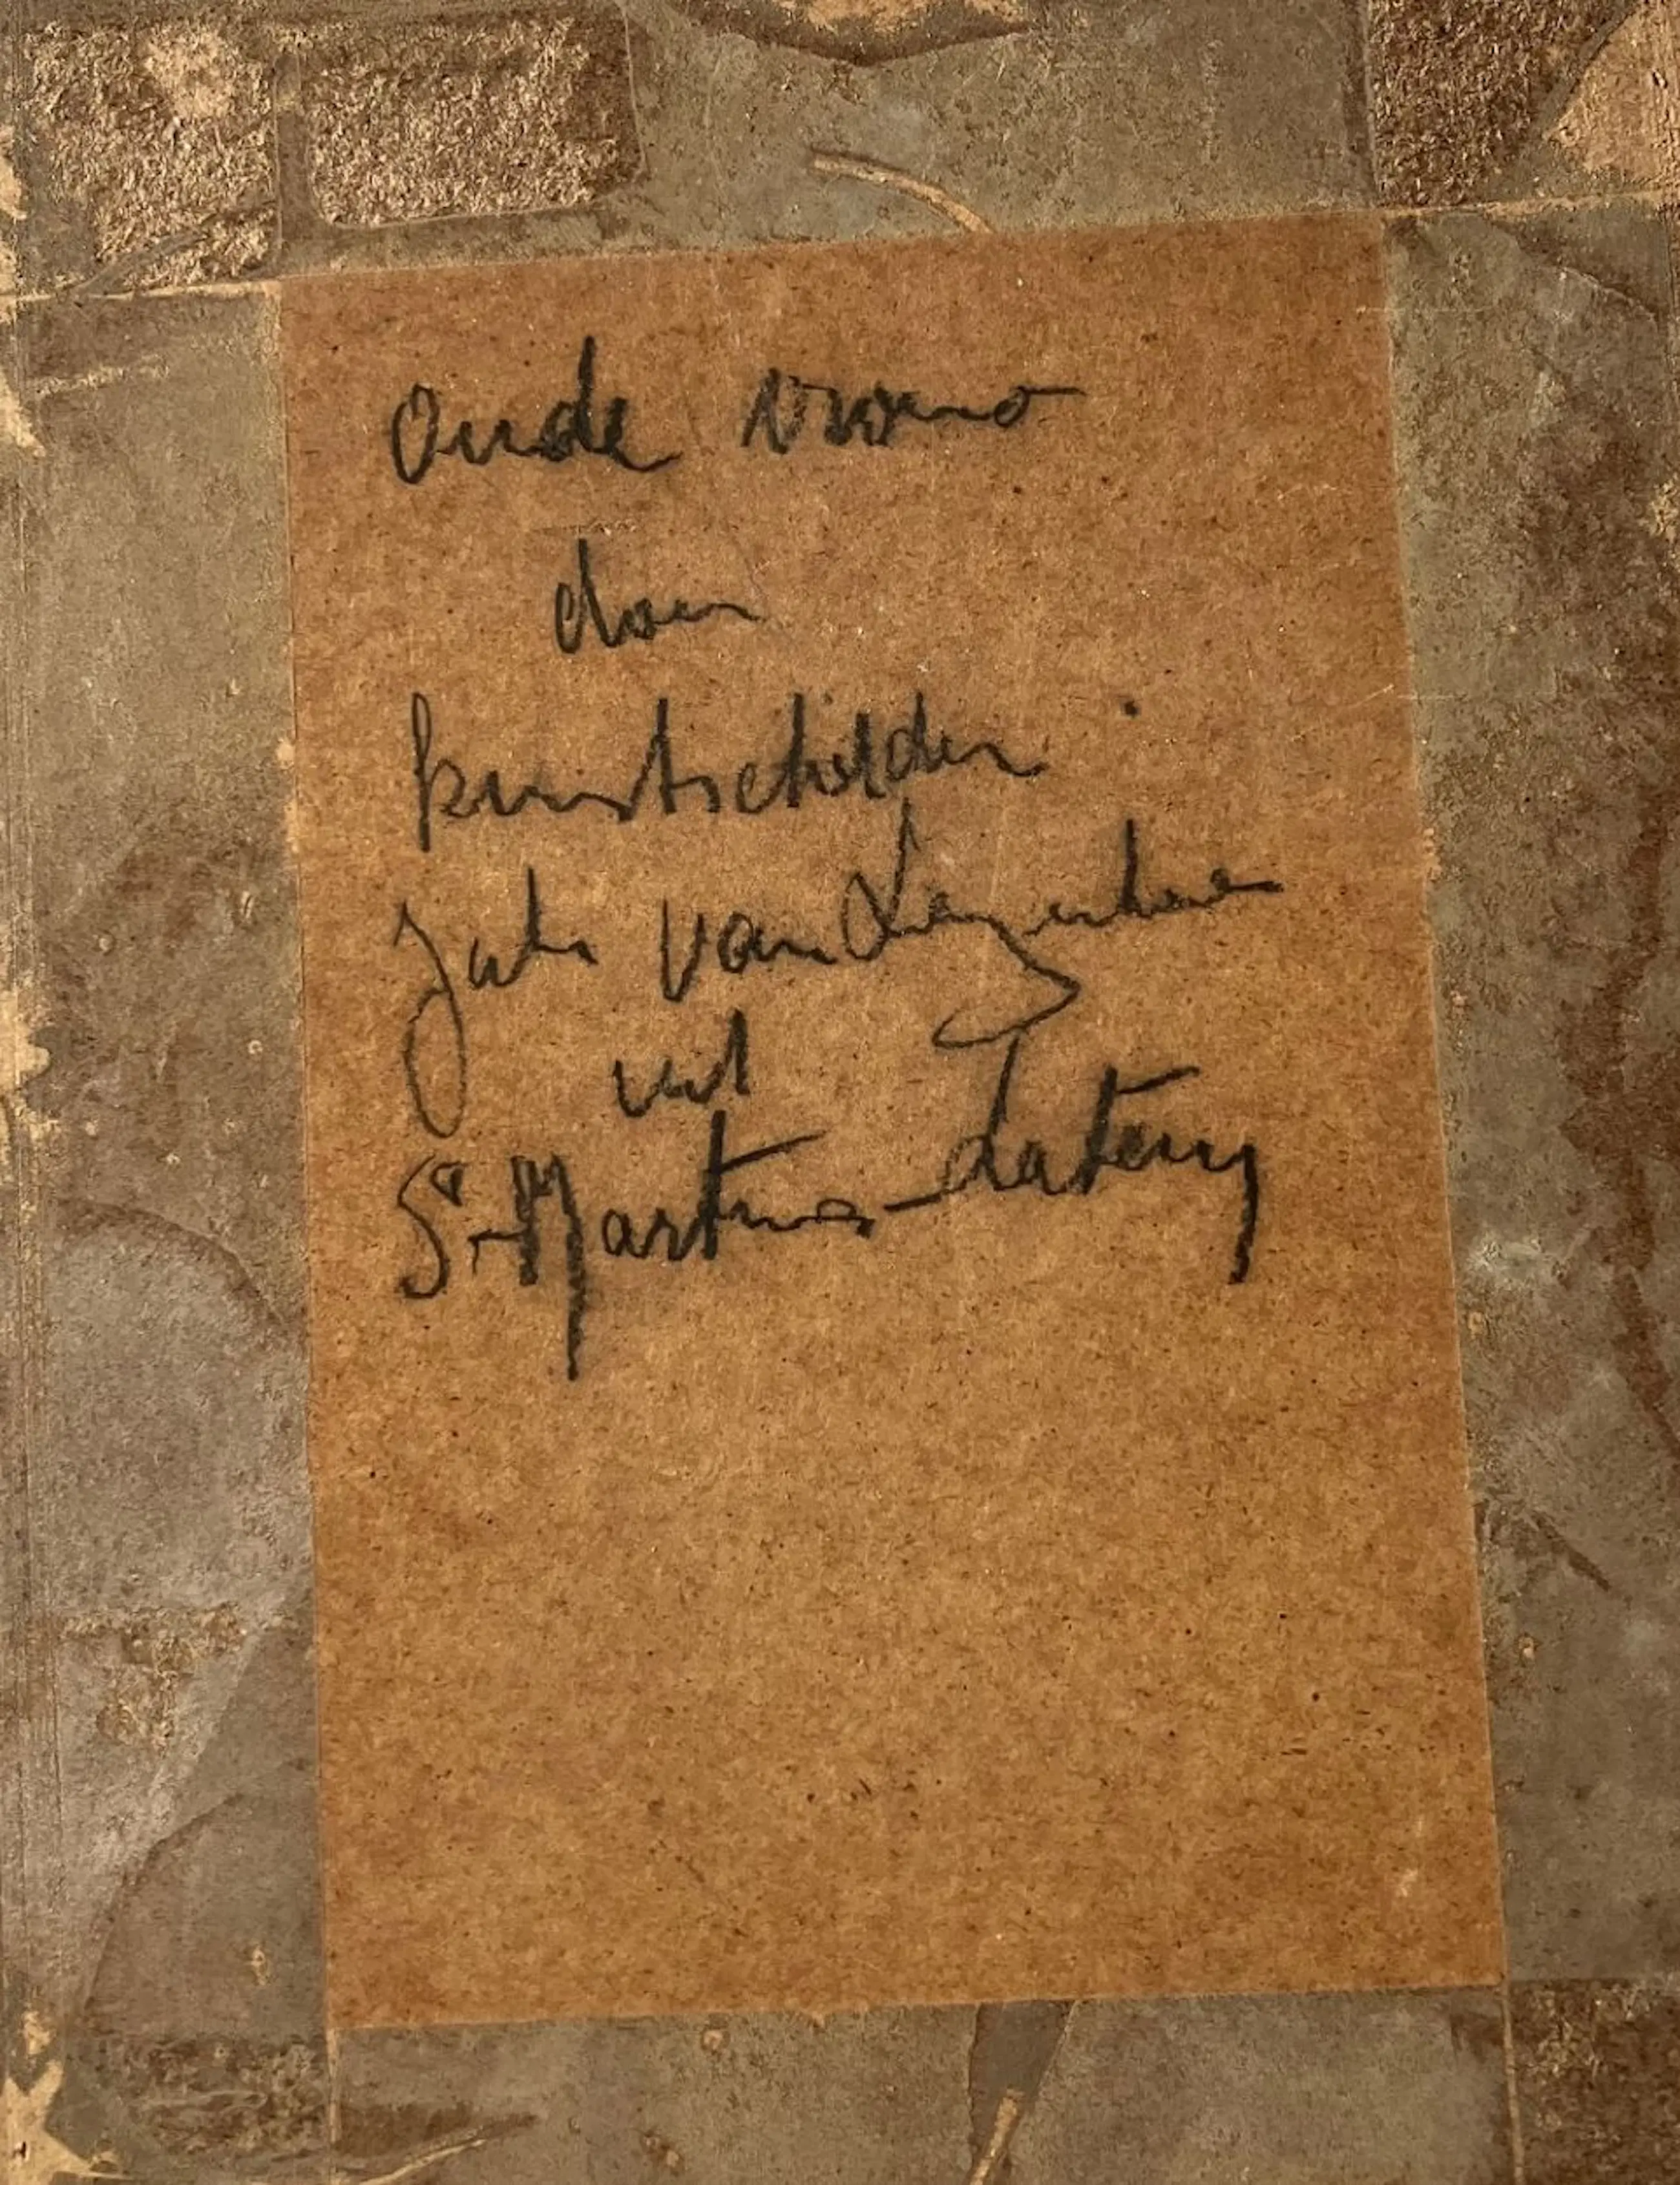 Oude vrouw
door
kunstschilder
Van
uit
St-Martens-Latem